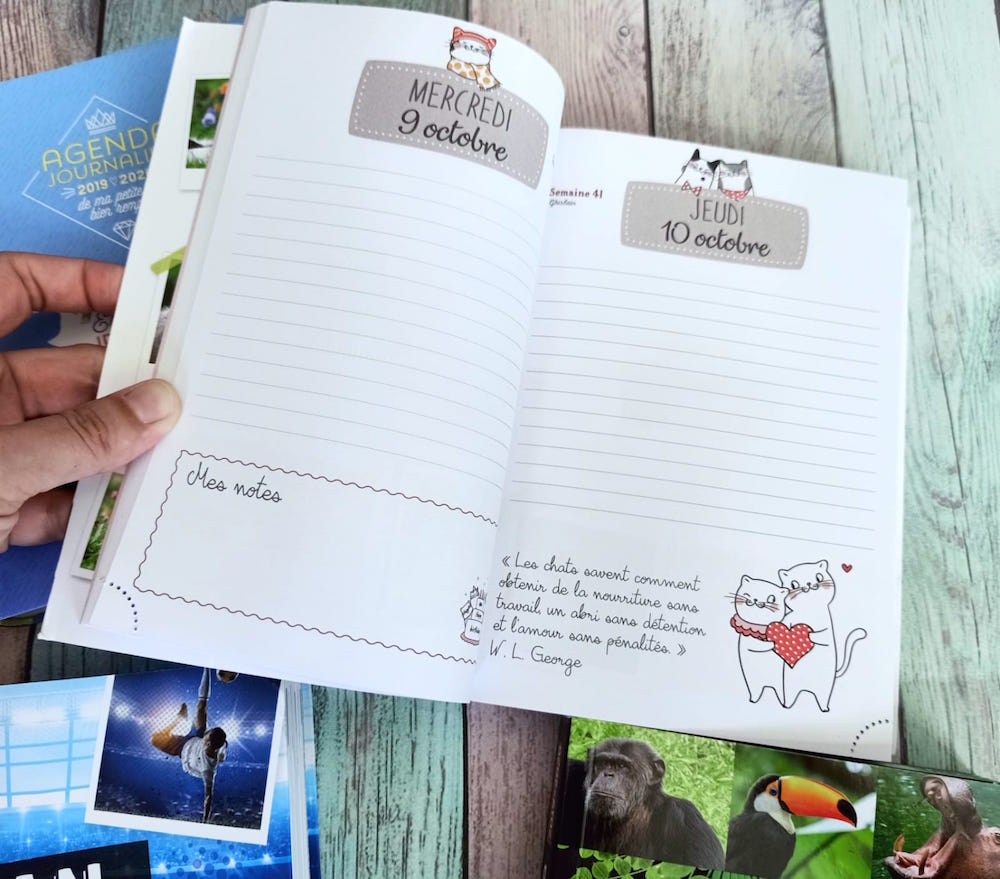 AGENDA
JOURNALI
2019 2020
de ma petite
bien remp
MERCREDI
9 octobre
Mes notes
Semaine 41
Ghislain
JEUDI
10 octobre
« Les chats savent comment
obtenir de la nourriture sans
travail, un abri sans détention
et l'amour sans pénalités. »
W. L. George